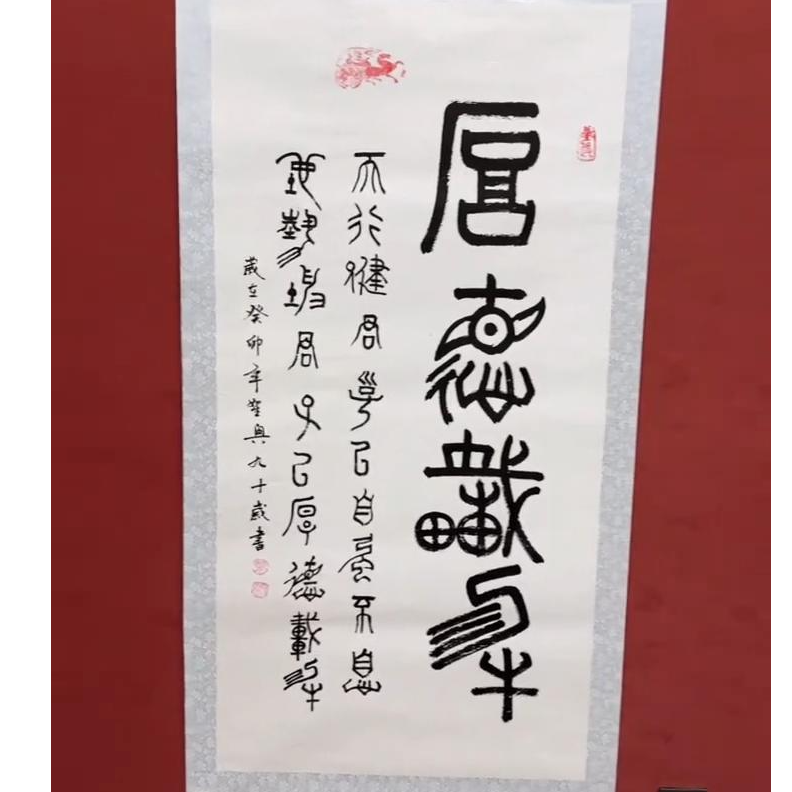 厚德載物
天行健君子以自強不息
地勢坤君子以厚德載物
歲在癸卯年興九十歲書